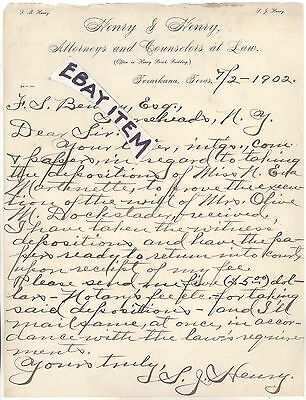 Henry & Henry,
Attorneys and Counselors at Law,
(Office in Henry Building)
Texarkana, Texas, 7/2-1902.
EBAY ITEM
F. S. Esq.,
Horseheads, N. Y.
Dear Sir:
Your
papers, in regard to taking
the depositions of Miss N. Eva
Martinette, to prove the execu-
tion of the will of Mrs Olive
M. Dockstader, received,
I have taken the witness
depositions and have the pa-
pers ready, to return into Court,
upon receipt of my fee.
Please send me five ($5.00) dol-
lars - Notary's fee etc. - for taking
said depositions - and I'll
mail same, at once, in accor-
dance with the law's require-
ments.
Yours truly,
S. J. Henry.